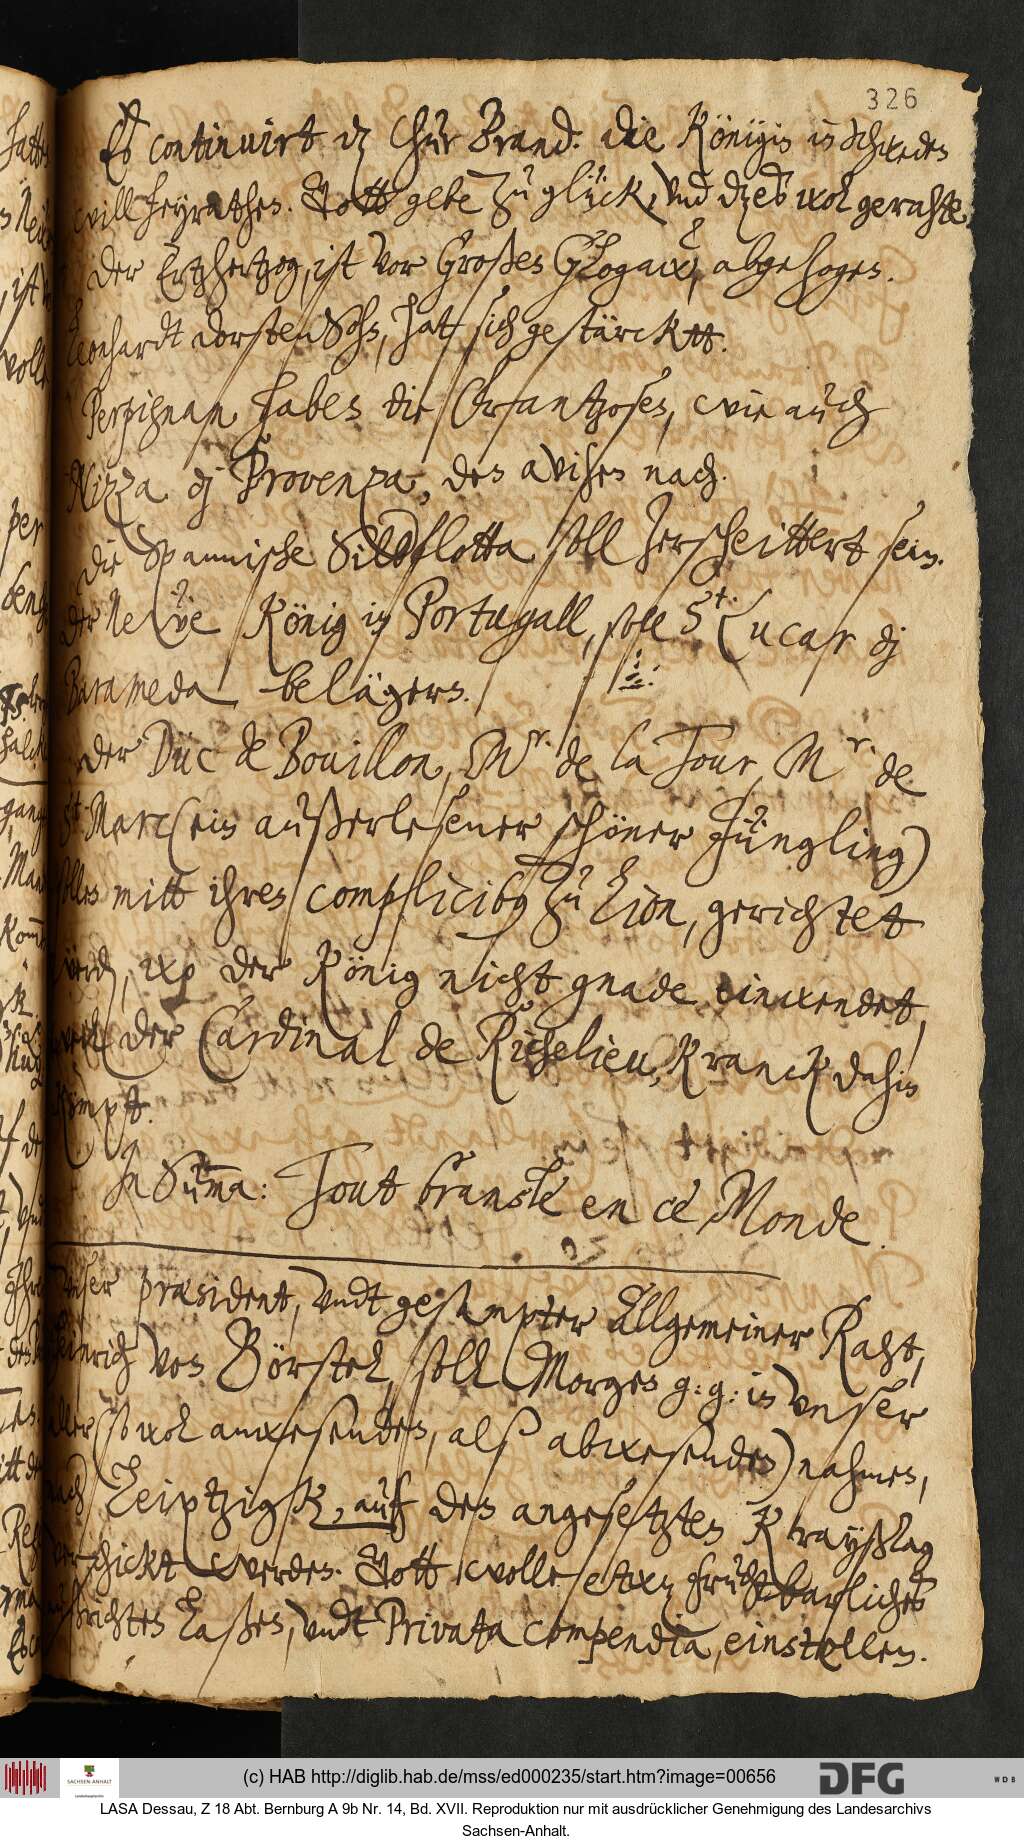 326
Es continuirt dz ChurBrand. die Königin in Schweden
will heyrathen. Gott gebe zu glück, vnd dz es wol gerahte.
Der Ertzhertzog, ist vor Großen Glogaw, abgezogen.
Leonhardt Dorstensohn, hat sich gestärcktt.
Perpignan haben die Frantzosen, wie auch
Nizza di Provenza, den avisen nach.
Die Spannische Silbflotta soll zerscheittert sein.
Der Newe König in Portugall, soll St. Lucar di
Barameda belägern.
Der Düc de Bouillon, Mr. de la Tour, Mr. de
St. Marc (ein außerlesener schöner Jüngling)
sollen mitt ihren complicibus zu Lion, gerichtet
werden, wo der König nicht gnade einwendet,
weil der Cardinal de Richelieu, Kranck dahin
kömpt.
In Summa: Tout bransle en ce Monde.
Vnser præsident, vndt gesampter Allgemeiner Raht,
Heinrich von Börstel, soll Morgen g: g: in vnser
aller (so wol anwesenden, als abwesenden) nahmen,
nach Leiptzigk, auf den angesetzten Krayßtag
verschickt werden. Gott wolle etwas fruchtbarliches
außrichten Laßen, vndt Privata compendia, einstellen.
(c) HAB http://diglib.hab.de/mss/ed000235/start.htm?image=00656
SACHSEN-ANHALT
DFG
WDB
LASA Dessau, Z 18 Abt. Bernburg A 9b Nr. 14, Bd. XVII. Reproduktion nur mit ausdrücklicher Genehmigung des Landesarchivs
Sachsen-Anhalt.